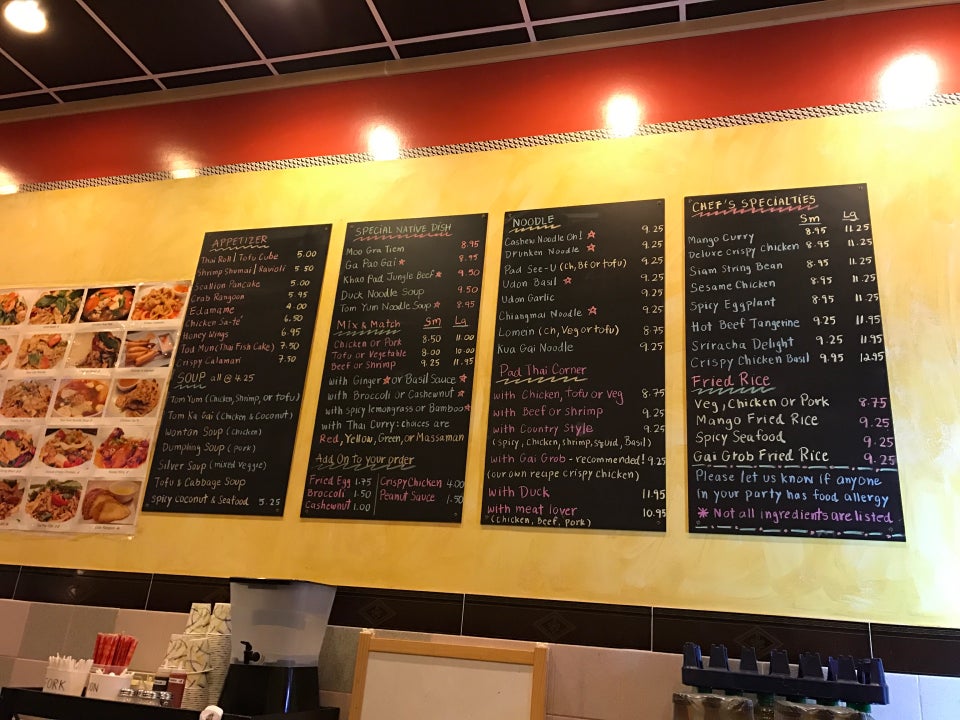 APPETIZER
Thai Roll | Tofu Cube 5.00
Shrimp Shumai | Ravioli 5.50
Scallion Pancake 5.00
Crab Rangoon 5.95
Edamame 4.00
Chicken Sa-te' 6.50
Honey Wings 6.95
Tod Mun (Thai Fish Cake) 7.50
Crispy Calamari 7.50
SOUP all @ 4.25
Tom Yum (Chicken, Shrimp, or Tofu)
Tom Ka Gai (Chicken & Coconut)
Wonton Soup (Chicken)
Dumpling Soup (Pork)
Silver Soup (mixed veggie)
Tofu & Cabbage Soup
Spicy Coconut & Seafood 5.25
SPECIAL NATIVE DISH
Moo Gra Tiem 8.95
Ga Pao Gai 8.95
Khao Pad Jungle Beef 9.50
Duck Noodle Soup 9.50
Tom Yum Noodle Soup 8.95
Mix & Match Sm Lg
Chicken or Pork 8.50 11.00
Tofu or Vegetable 8.00 10.00
Beef or Shrimp 9.25 11.95
with Ginger or Basil Sauce
with Broccoli or Cashewnut
with spicy lemongrass or Bamboo
with Thai Curry: choices are
Red, Yellow, Green, or Massaman
Add On to your order
Fried Egg 1.75 Crispy Chicken 4.00
Broccoli 1.50 Peanut Sauce 1.50
Cashewnut 1.00
NOODLE
Cashew Noodle Oh! 9.25
Drunken Noodle 9.25
Pad See-U (Ch, Bf or Tofu) 9.25
Udon Basil 9.25
Udon Garlic 9.25
Chiangmai Noodle 9.25
Lomein (Ch, Veg or Tofu) 8.75
Kua Gai Noodle 9.25
Pad Thai Corner
with Chicken, Tofu or Veg 8.75
with Beef or Shrimp 9.25
with Country Style 9.25
(Spicy, Chicken, shrimp, squid, Basil)
with Gai Grob - recommended! 9.25
(our own recipe crispy chicken)
with Duck 11.95
with meat lover 10.95
(Chicken, Beef, Pork)
CHEF'S SPECIALTIES
Sm Lg
Mango Curry 8.95 11.25
Deluxe Crispy Chicken 8.95 11.25
Siam String Bean 8.95 11.25
Sesame Chicken 8.95 11.25
Spicy Eggplant 8.95 11.25
Hot Beef Tangerine 9.25 11.95
Sriracha Delight 9.25 11.95
Crispy Chicken Basil 9.95 12.95
Fried Rice
Veg, Chicken or Pork 8.75
Mango Fried Rice 9.25
Spicy Seafood 9.25
Gai Grob Fried Rice 9.25
Please let us know if anyone
in your party has food allergy
* Not all ingredients are listed
FORK